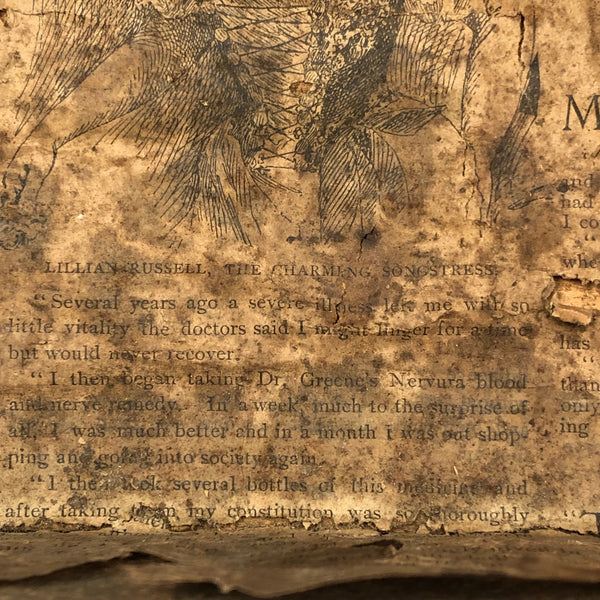 LILLIAN RUSSELL, THE CHARMING SONGSTRESS.
“Several years ago a severe illness left me with so
little vitality the doctors said I might linger for a time
but would never recover.
“I then began taking Dr. Greene's Nervura blood
and nerve remedy. In a week, much to the surprise of
all, I was much better and in a month I was out shop-
ping and going into society again.
“I then took several bottles of this medicine and
after taking them my constitution was so thoroughly
M
“
and
had
I co
“
whe
has
“
than
only
ing
“